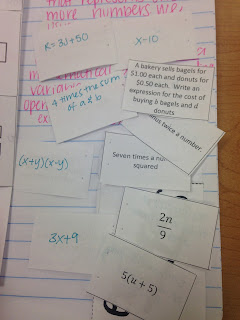 more numbers w/o
K = 3J+50
x-10
A bakery sells bagels for
$1.00 each and donuts for
$0.50 each. Write an
expression for the cost of
buying b bagels and d
donuts
4 times the sum
of a & b
twice a number
(x+y)(x-y)
Seven times a
squared
2n
9
3x+9
5(u + 5)